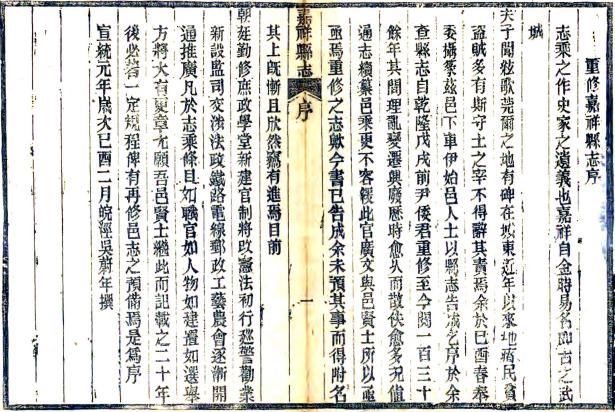 重修嘉祥縣志序
志乘之作史家之遺義也嘉祥自金時易名即古之武
城
夫子聞絃歌莞爾之地有碑在城東近年以來地瘠民貧
盜賊多有斯守土之宰不得辭其責焉余於己酉春奉
委攝篆茲邑下車伊始邑人士以縣志告成乞序於余
查縣志自乾隆戊戌前尹倭君重修至今閱一百三十
餘年其間理亂變遷與廢歷時愈久而散佚愈多況值
通志續纂邑乘更不容緩此官廣文與邑賢士所以亟
亟焉重修之志歟今書已告成余未預其事而得附名
其上既慚且欣然竊有進焉目前
嘉祥縣志 序 一
朝廷勤修庶政學堂新建官制將改憲法初行巡警勸業
新設監司交涉法政鐵路電線郵政工藝農會逐漸開
通推廣凡於志乘條目如職官如人物如建置如選舉
方將大有更章尤願吾邑賢士繼此而記載之二十年
後必若一定規程俾有再修邑志之預備焉是為序
宣統元年歲次己酉二月皖涇吳蔚年撰